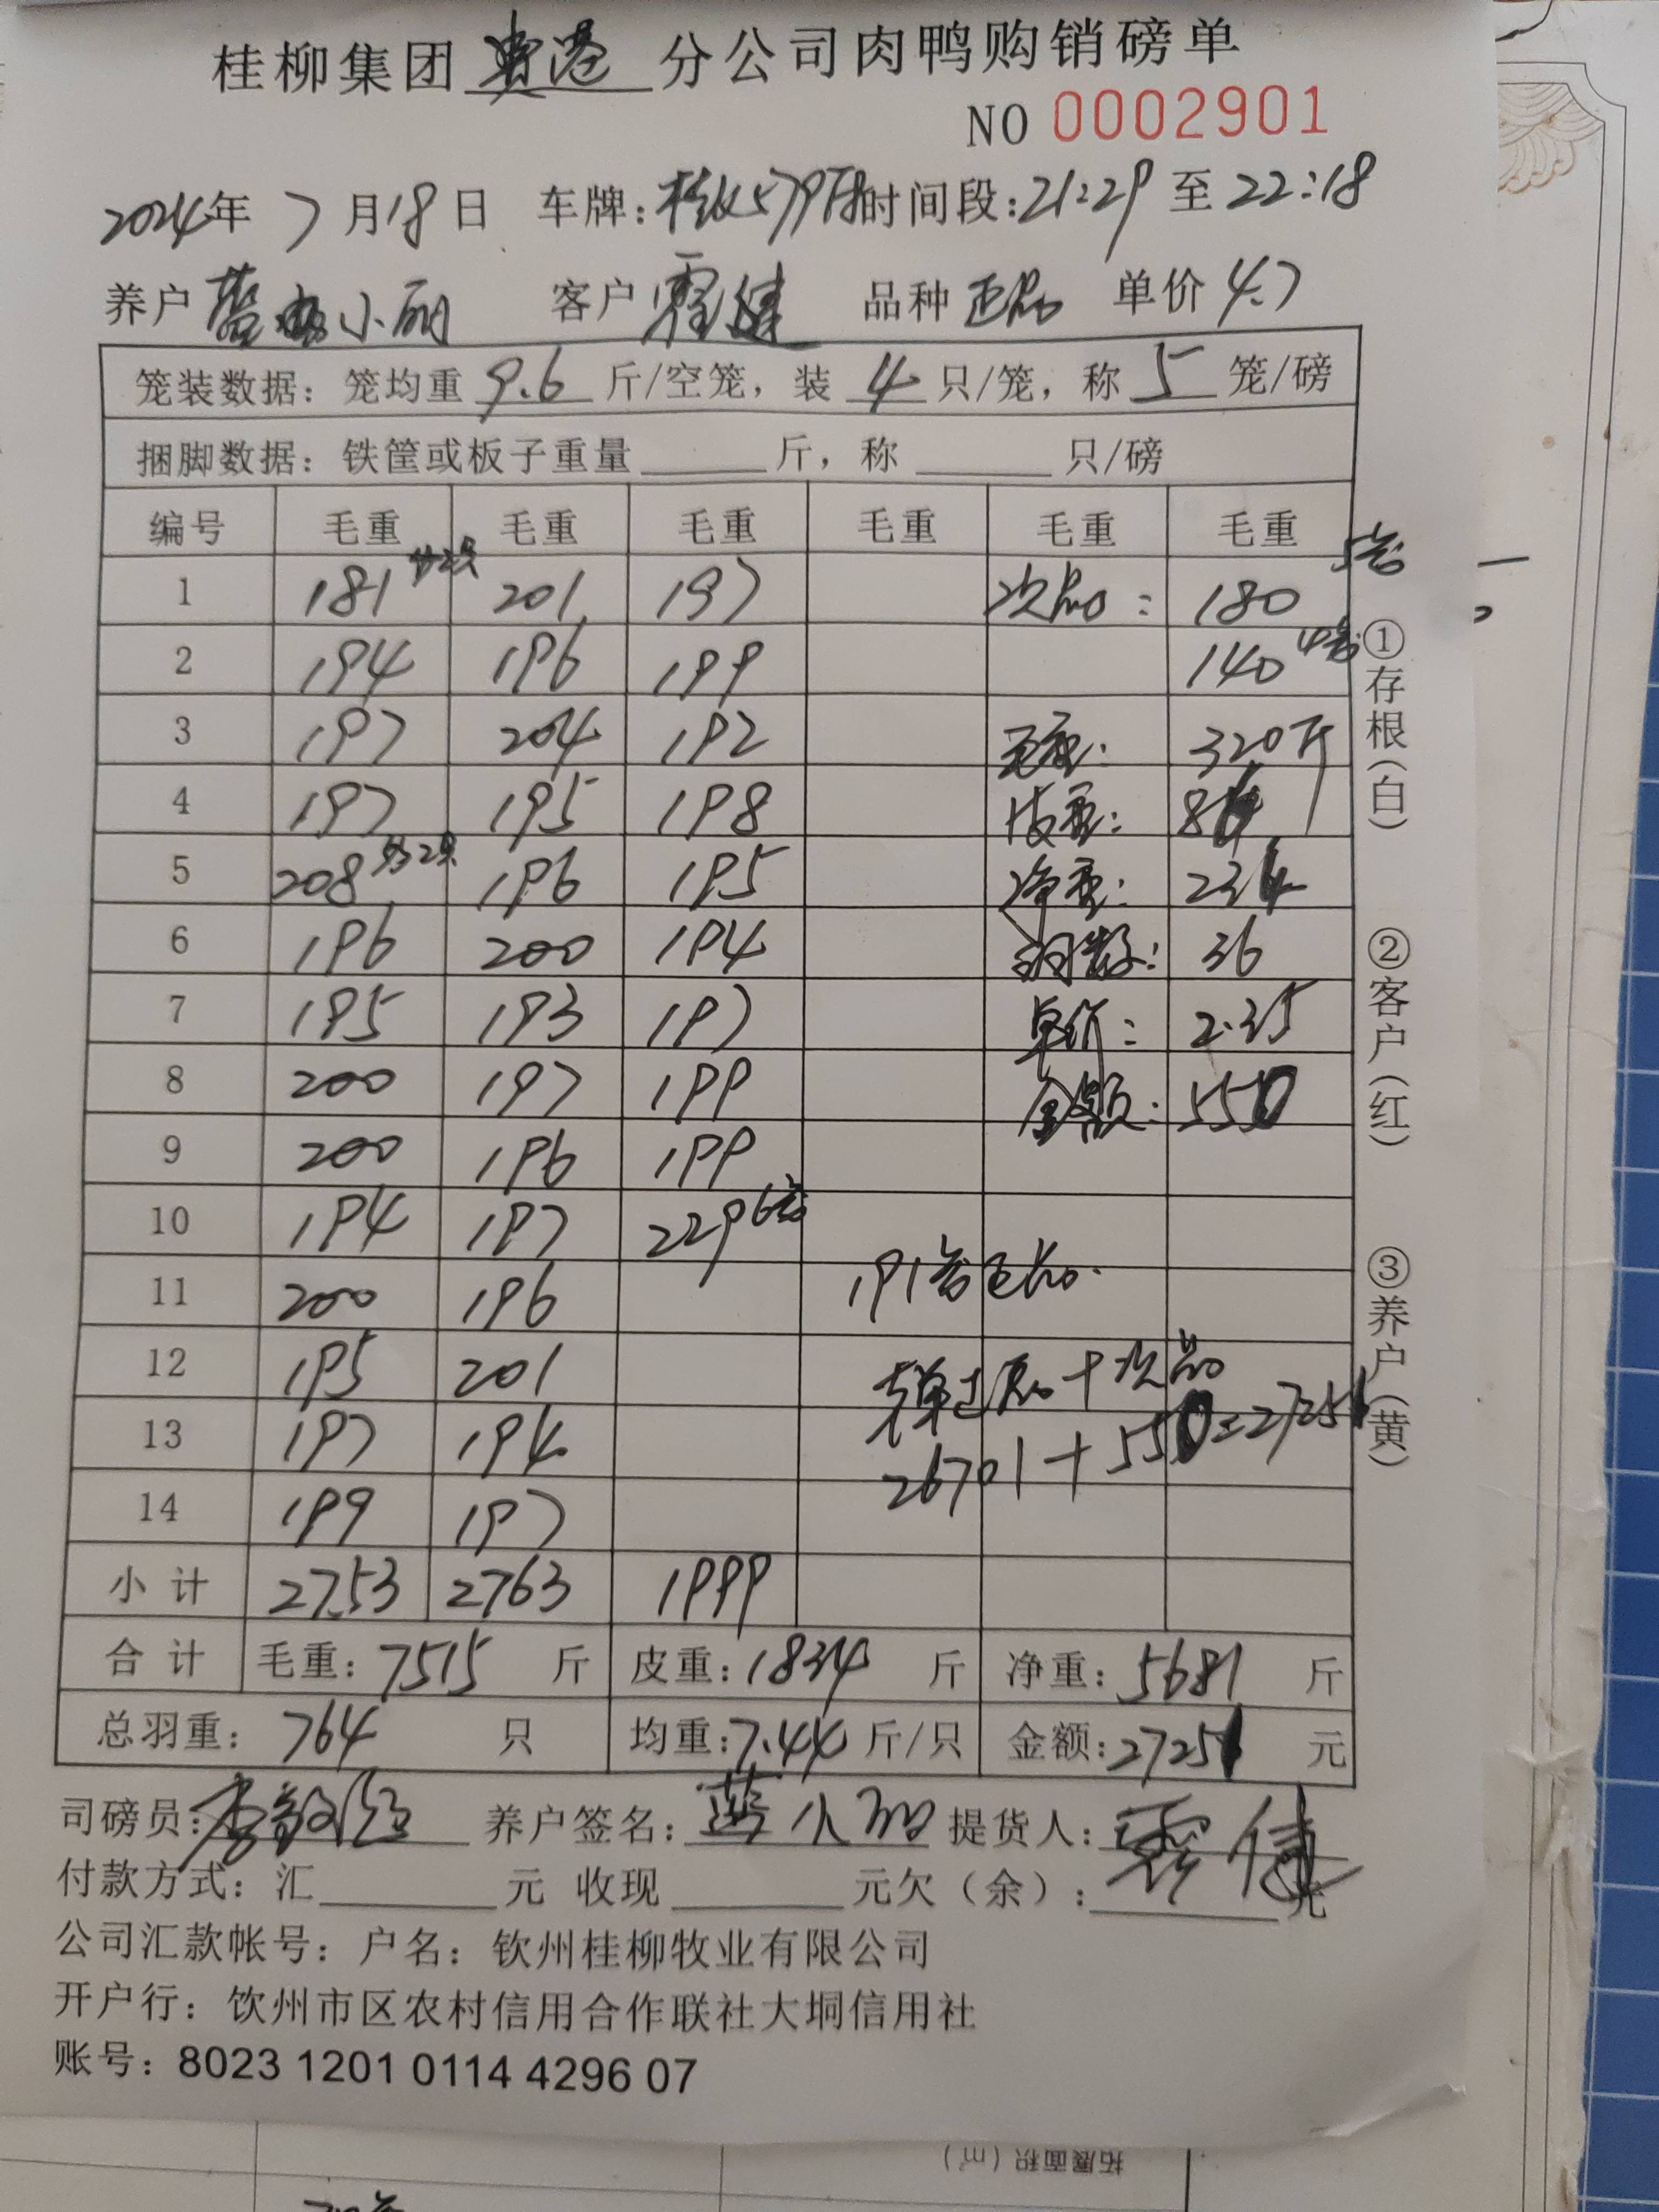 桂柳集团 贵港 分公司肉鸭购销磅单
NO 0002901
2024年 7月18日 车牌: 时间段:21:29 至 22:18
养户 小丽 客户 霍健 品种 正品 单价 4.7
笼装数据: 笼均重 9.6 斤/空笼, 装 4 只/笼, 称 5 笼/磅
捆脚数据: 铁筐或板子重量 斤, 称 只/磅
编号 毛重 毛重 毛重 毛重 毛重 毛重
1 181 201 197 次品: 180 5笼
2 194 196 199 140 4笼
3 197 204 192 毛重: 320斤
4 197 195 198 皮重: 86
5 208 196 195 净重: 234
6 196 200 194 羽数: 36
7 195 193 197 单价: 2.35
8 200 197 199 金额: 550
9 200 196 199
10 194 197 229 6笼
11 200 196 191笼正品.
12 195 201 正品+次品
13 197 194 26701+550=27251
14 199 197
小计 2753 2763 1999
合计 毛重: 7515 斤 皮重: 1834 斤 净重: 5681 斤
总羽重: 764 只 均重: 7.44 斤/只 金额: 27251 元
司磅员: 养户签名: 提货人: 霍健
付款方式: 汇 元 收现 元欠(余): 元
公司汇款帐号: 户名: 钦州桂柳牧业有限公司
开户行: 饮州市区农村信用合作联社大垌信用社
账号: 8023 1201 0114 4296 07
①存根(白)
②客户(红)
③养户(黄)
拓展面积(㎡)